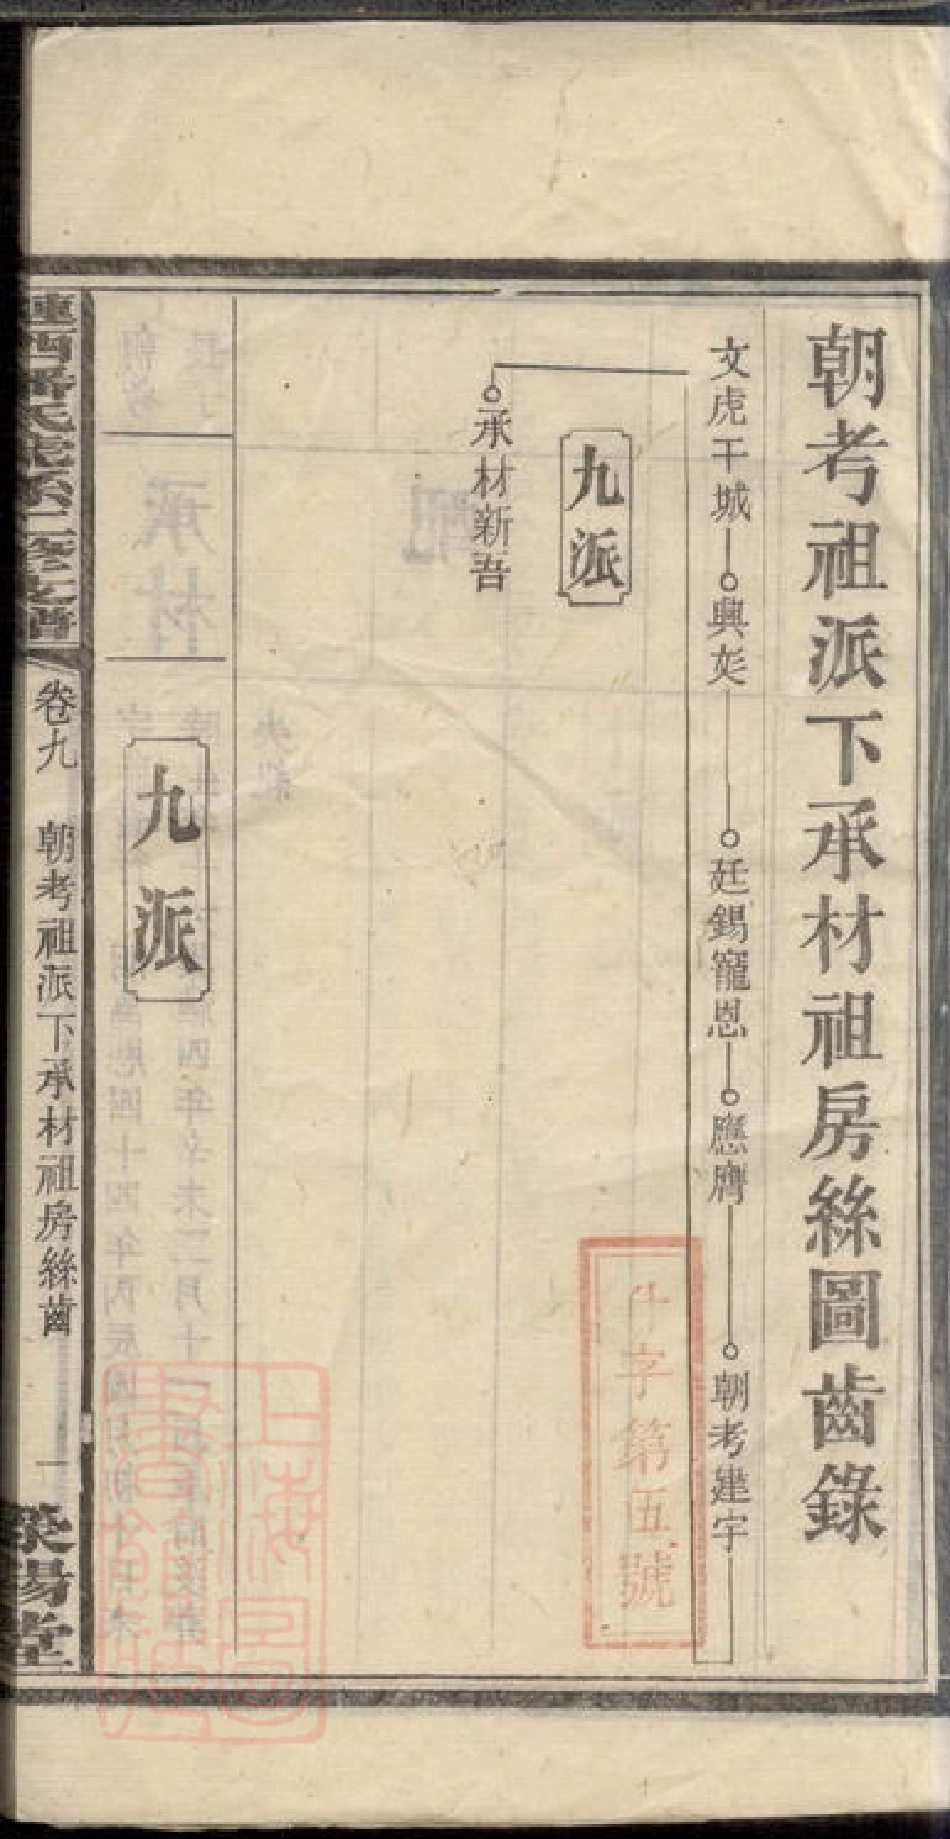 朝考祖派下承材祖房絲圖齒錄
文虎干城 興彣 廷錫寵恩 應膺 朝考建宇
九派
承材新吾
什字第五號
九派
卷九 朝考祖派下承材祖房絲齒 一
滎陽堂
上海圖書館藏